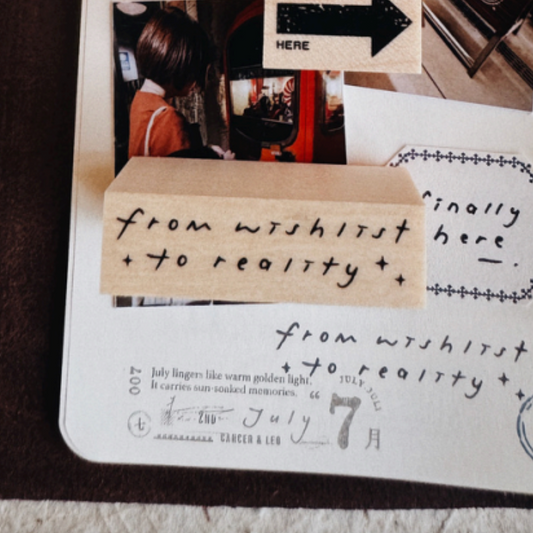 HERE
from wishlist
to reality
finally
here
from wishlist
to reality
007
July lingers like warm golden light.
It carries sun-soaked memories.
JULY JULI
七
2ND
July
CANCER & LEO
7
月